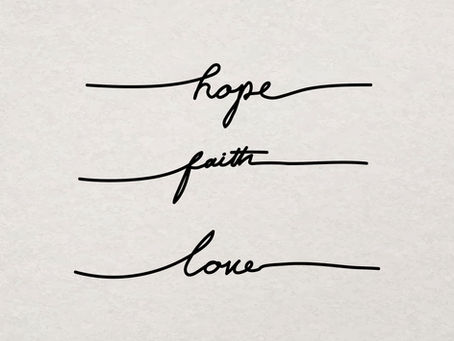 hope
faith
love